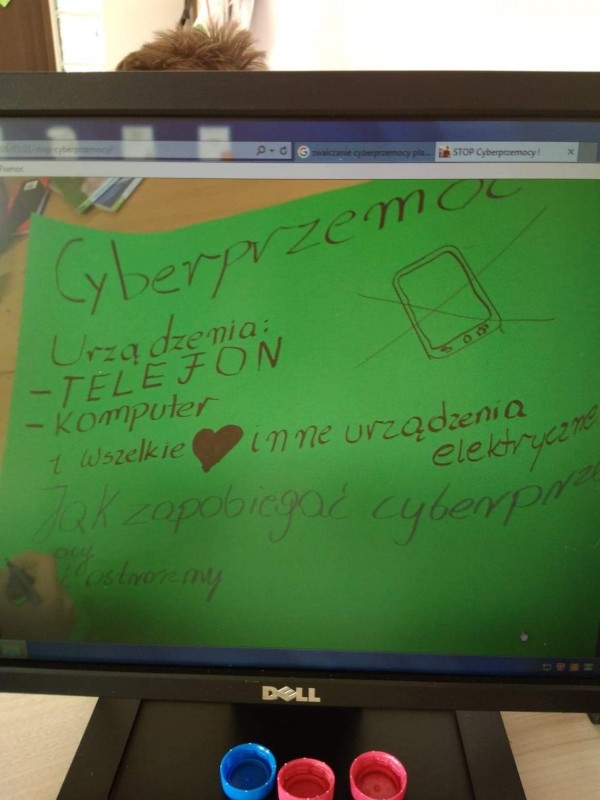 zwalczanie cyberprzemocy pla...
STOP Cyberprzemocy !
Cyberprzemoc
Urządzenia:
- TELEFON
- Komputer
i wszelkie inne urządzenia
elektryczne
Jak zapobiegać cyberprze
ostrożny
DELL